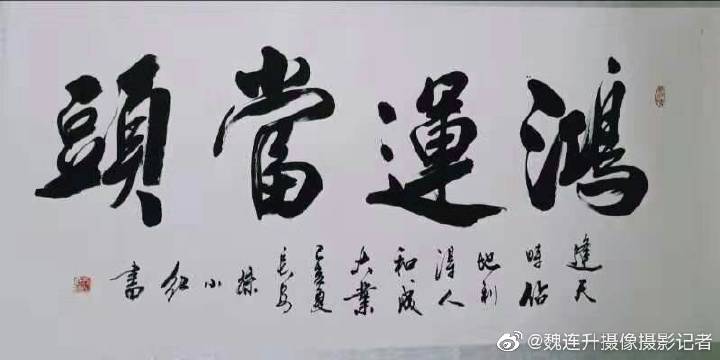 鴻運當頭
逢天
時佔
地利
得人
和成
大業
己亥夏
長安
小
紅
書
@魏连升摄像摄影记者